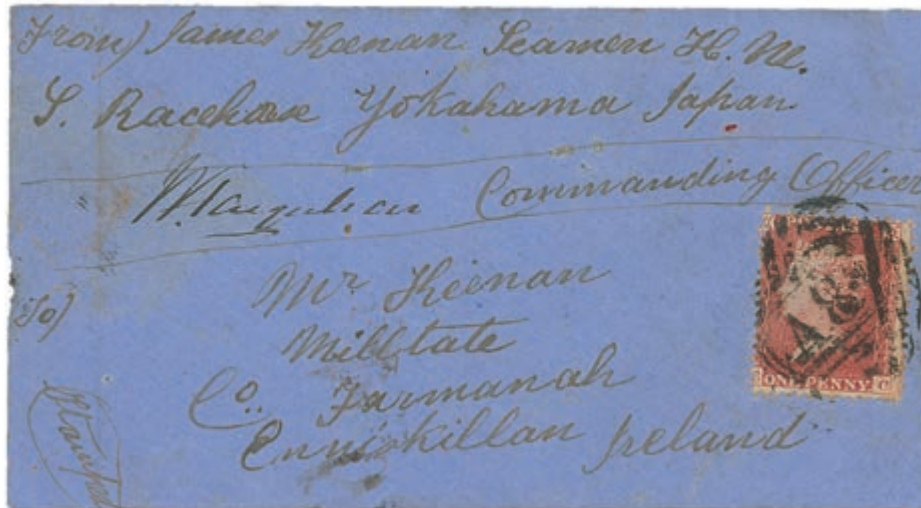 From) James Keenan Seamen H. M.
S. Racehase Yokahama Japan
Commanding Officer
To)
Mr Keenan
Milltate
Co. Farmanah
Enniskillan Ireland
A88
ONE PENNY
C